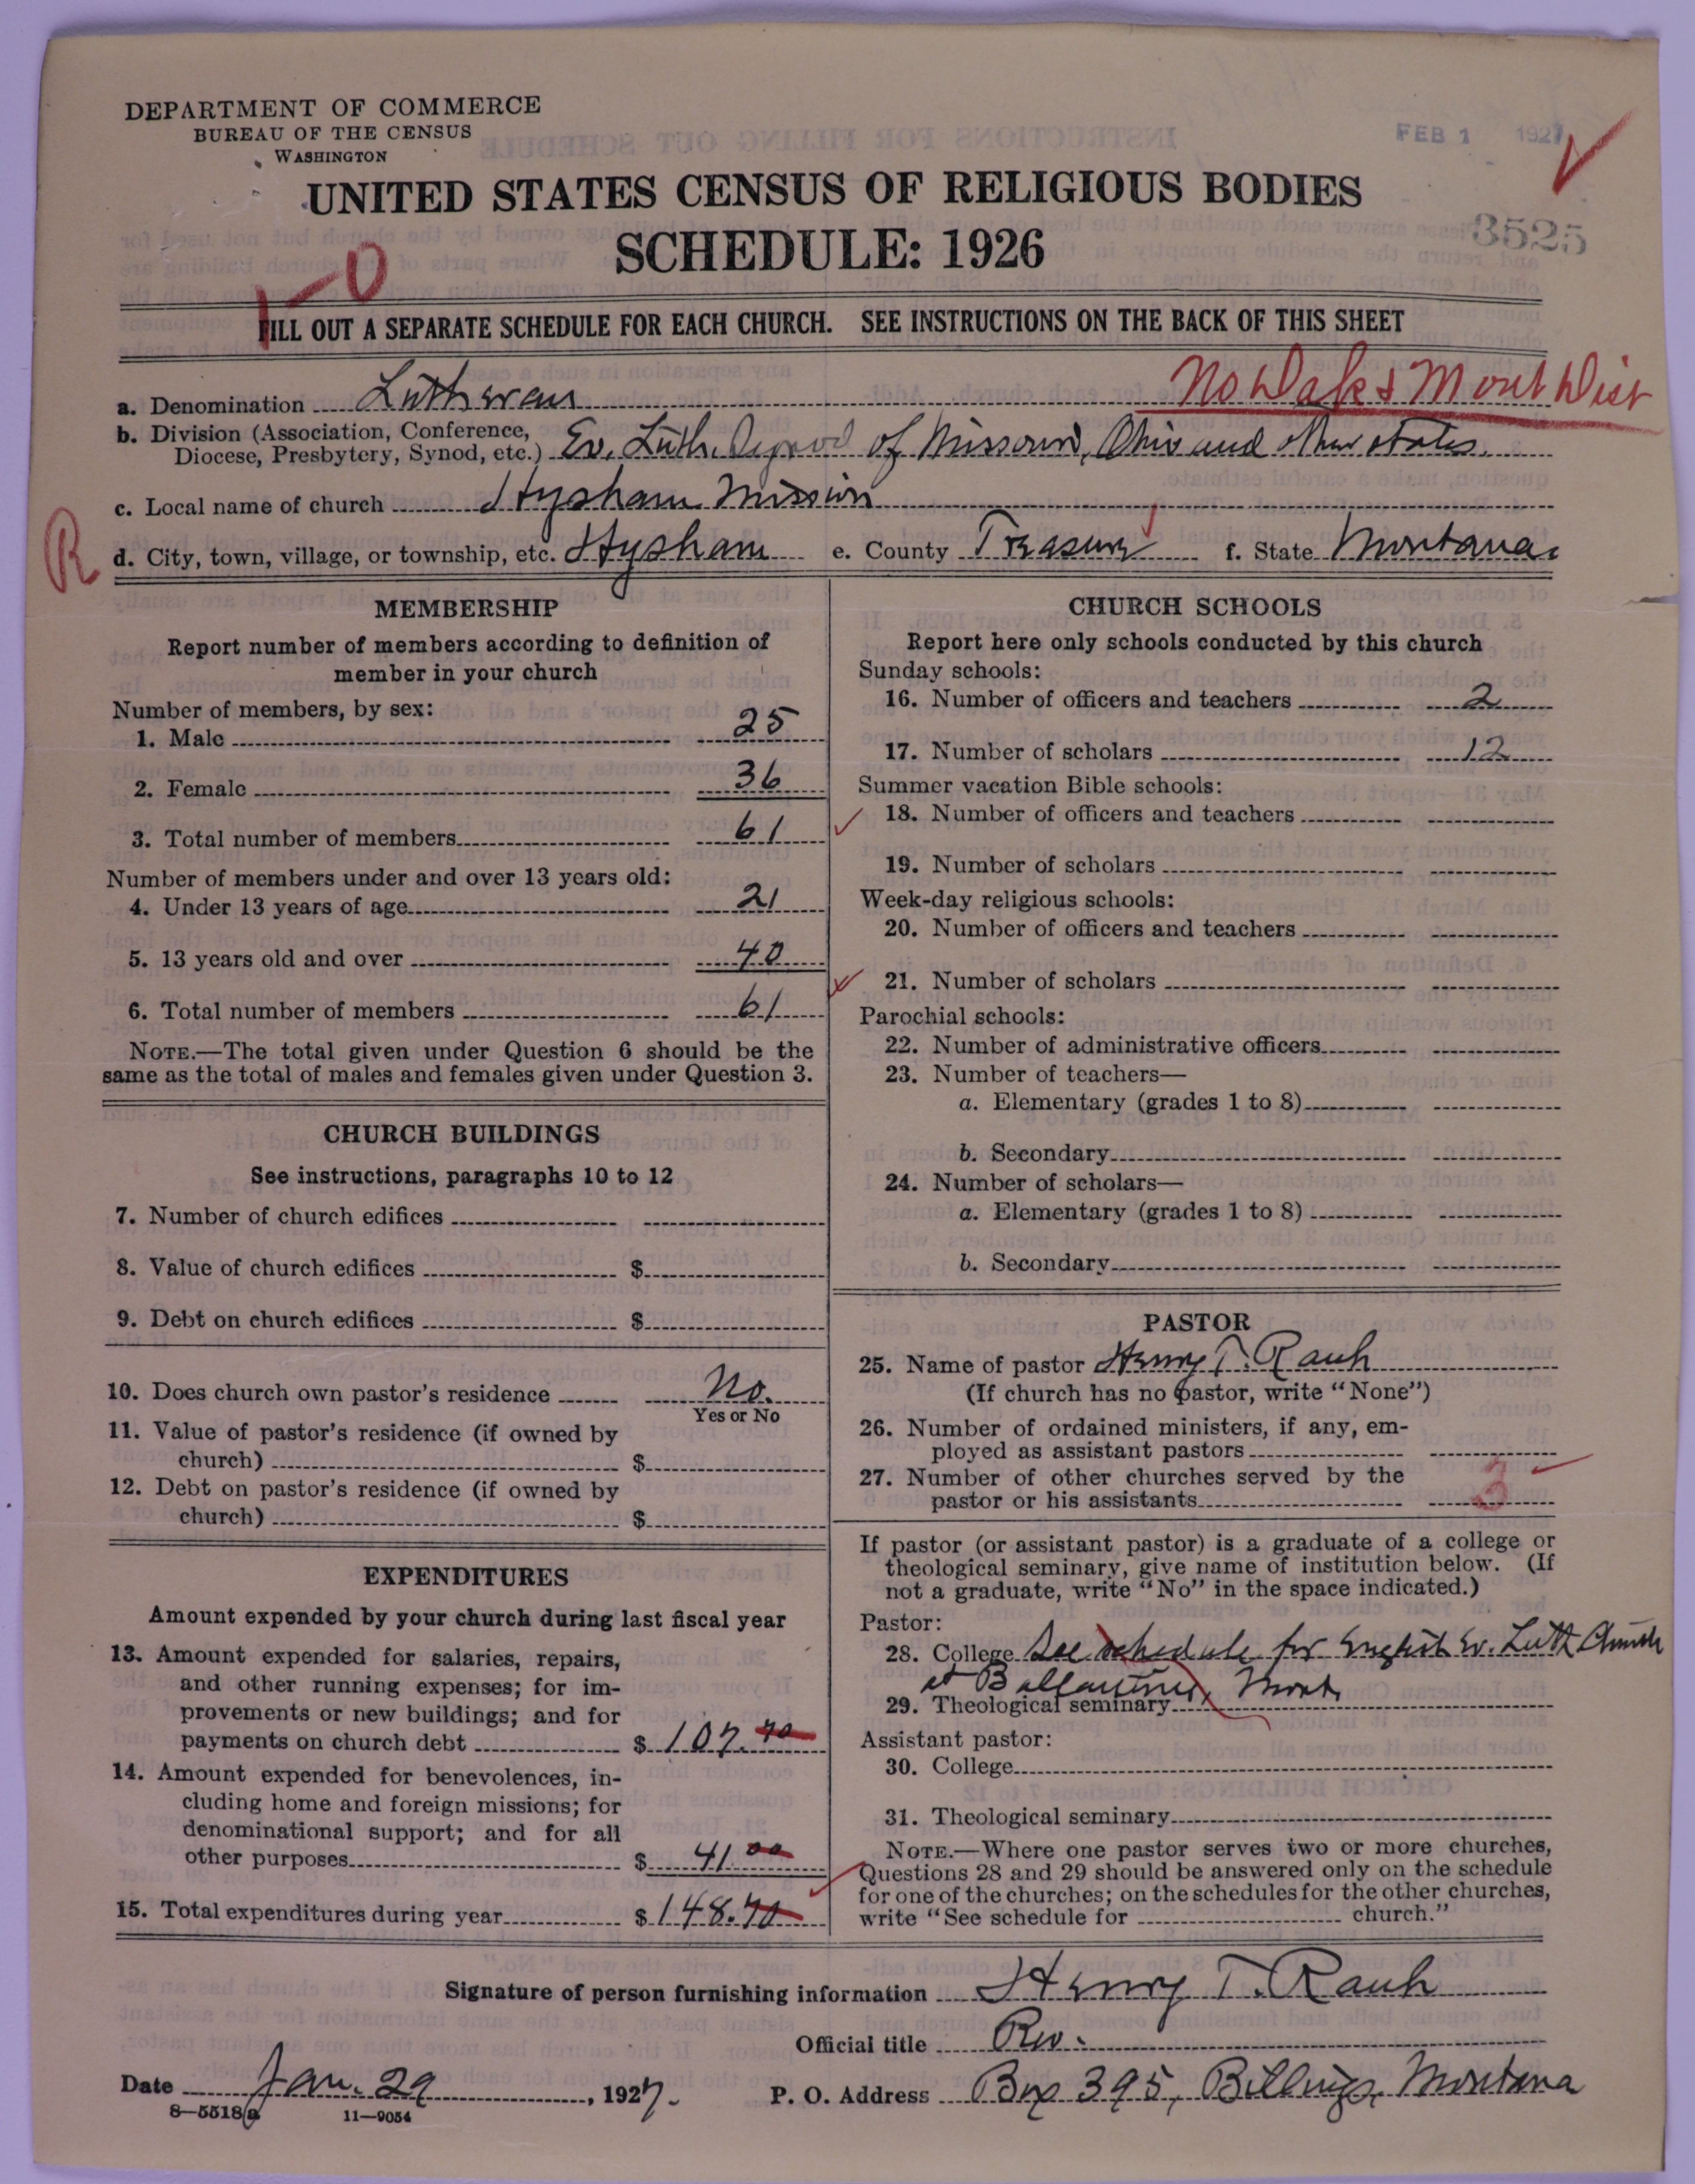 DEPARTMENT OF COMMERCE
BUREAU OF THE CENSUS
WASHINGTON
FEB 1 1927
UNITED STATES CENSUS OF RELIGIOUS BODIES
SCHEDULE: 1926
3525
0
FILL OUT A SEPARATE SCHEDULE FOR EACH CHURCH. SEE INSTRUCTIONS ON THE BACK OF THIS SHEET
No Dak & Mont Dist
a. Denomination Lutheran
b. Division (Association, Conference,
Diocese, Presbytery, Synod, etc.) Ev. Luth. Synod of Missouri, Ohio and other states.
c. Local name of church Hysham Mission
R
d. City, town, village, or township, etc. Hysham e. County Treasure f. State Montana.
MEMBERSHIP
Report number of members according to definition of
member in your church
Number of members, by sex:
1. Male 25
2. Female 36
3. Total number of members 61
Number of members under and over 13 years old:
4. Under 13 years of age 21
5. 13 years old and over 40
6. Total number of members 61
NOTE.—The total given under Question 6 should be the
same as the total of males and females given under Question 3.
CHURCH BUILDINGS
See instructions, paragraphs 10 to 12
7. Number of church edifices
8. Value of church edifices $
9. Debt on church edifices $
10. Does church own pastor's residence No.
Yes or No
11. Value of pastor's residence (if owned by
church) $
12. Debt on pastor's residence (if owned by
church) $
EXPENDITURES
Amount expended by your church during last fiscal year
13. Amount expended for salaries, repairs,
and other running expenses; for im-
provements or new buildings; and for
payments on church debt $ 107.70
14. Amount expended for benevolences, in-
cluding home and foreign missions; for
denominational support; and for all
other purposes $ 41.00
15. Total expenditures during year $ 148.70
CHURCH SCHOOLS
Report here only schools conducted by this church
Sunday schools:
16. Number of officers and teachers 2
17. Number of scholars 12
Summer vacation Bible schools:
18. Number of officers and teachers
19. Number of scholars
Week-day religious schools:
20. Number of officers and teachers
21. Number of scholars
Parochial schools:
22. Number of administrative officers
23. Number of teachers—
a. Elementary (grades 1 to 8)
b. Secondary
24. Number of scholars—
a. Elementary (grades 1 to 8)
b. Secondary
PASTOR
25. Name of pastor Henry T. Rauh
(If church has no pastor, write "None")
26. Number of ordained ministers, if any, em-
ployed as assistant pastors
27. Number of other churches served by the
pastor or his assistants 3
If pastor (or assistant pastor) is a graduate of a college or
theological seminary, give name of institution below. (If
not a graduate, write "No" in the space indicated.)
Pastor:
28. College See schedule for English Ev. Luth Church
at Ballantine, Mont.
29. Theological seminary
Assistant pastor:
30. College
31. Theological seminary
NOTE.—Where one pastor serves two or more churches,
Questions 28 and 29 should be answered only on the schedule
for one of the churches; on the schedules for the other churches,
write "See schedule for church."
Signature of person furnishing information Henry T. Rauh
Official title Rev.
Date Jan. 29, 1927. P. O. Address Box 395, Billings, Montana
8—5518a 11—9054